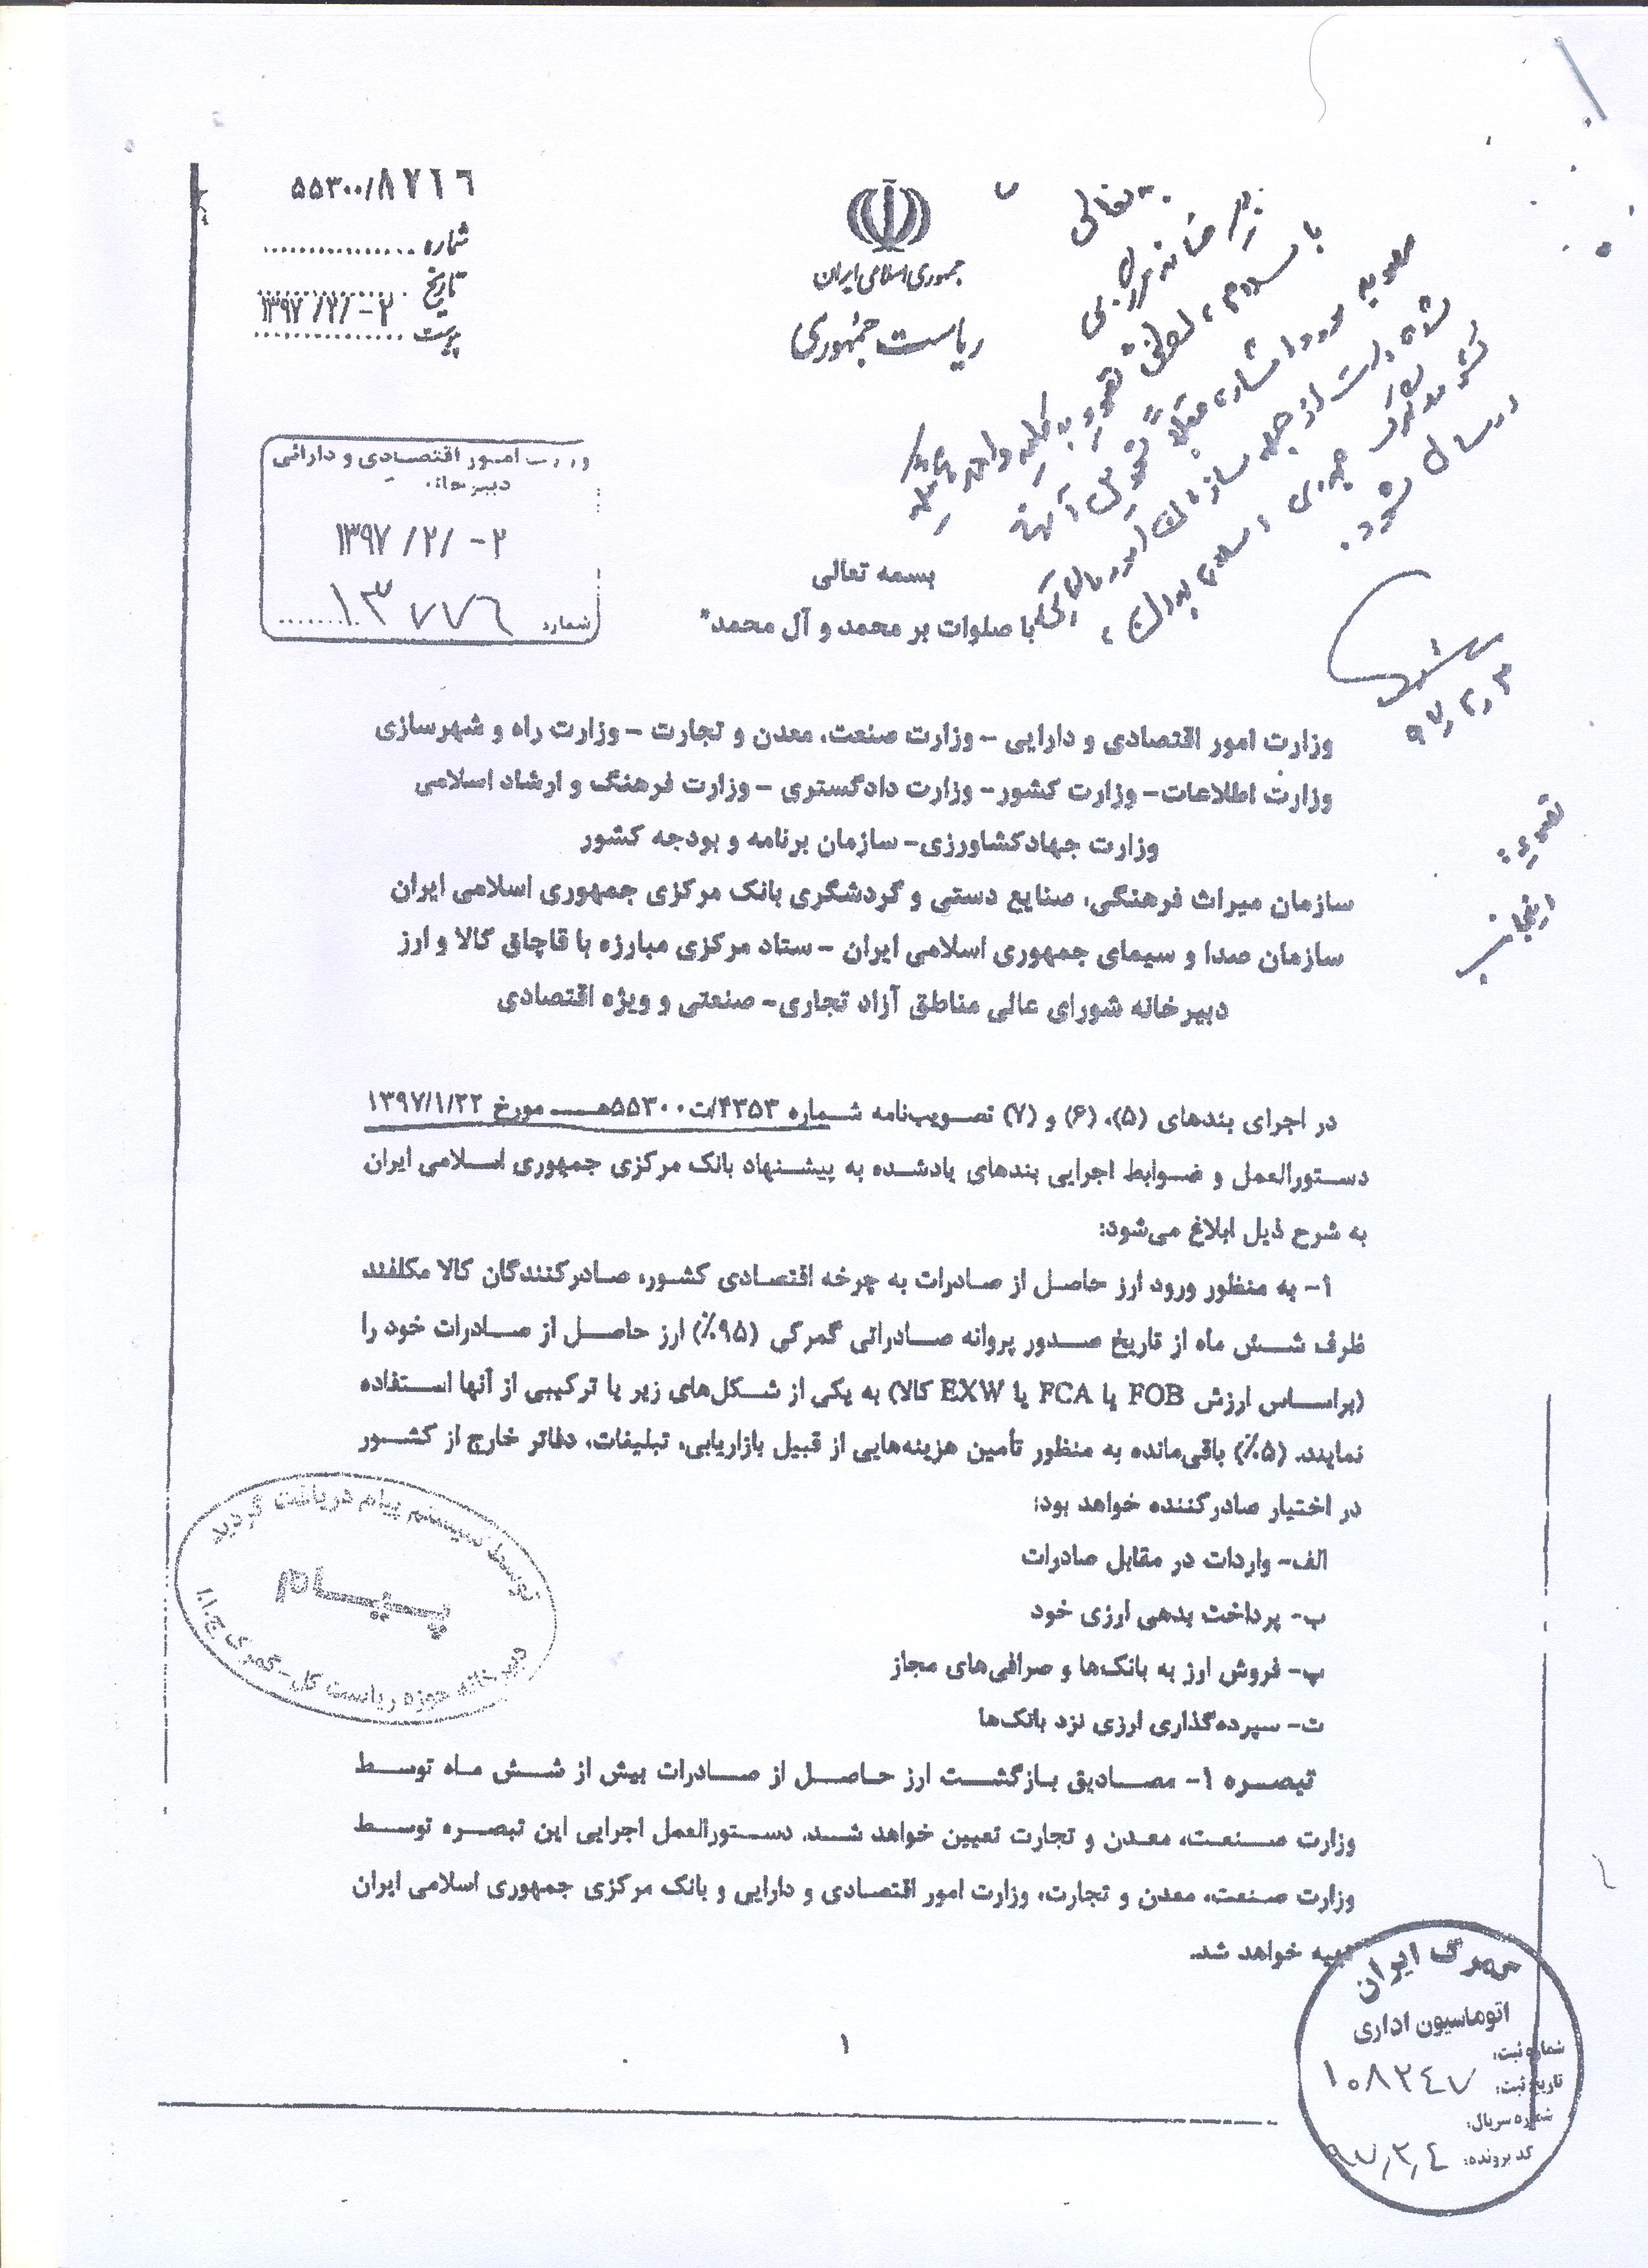 ۵۵۳۰۰/۸۷۱۶
شماره
تاریخ ۱۳۹۷/۲/-۲
پیوست
جمهوری اسلامی ایران
ریاست جمهوری
امور اقتصادی و دارائی
۱۳۹۷/۲/-۲
شماره ۱۳۷۷۶
بسمه تعالی
با صلوات بر محمد و آل محمد"
۹۷,۲,۳
وزارت امور اقتصادی و دارایی – وزارت صنعت، معدن و تجارت – وزارت راه و شهرسازی
وزارت اطلاعات – وزارت کشور – وزارت دادگستری – وزارت فرهنگ و ارشاد اسلامی
وزارت جهادکشاورزی – سازمان برنامه و بودجه کشور
سازمان میراث فرهنگی، صنایع دستی و گردشگری بانک مرکزی جمهوری اسلامی ایران
سازمان صدا و سیمای جمهوری اسلامی ایران – ستاد مرکزی مبارزه با قاچاق کالا و ارز
دبیرخانه شورای عالی مناطق آزاد تجاری – صنعتی و ویژه اقتصادی
در اجرای بندهای (۵)، (۶) و (۷) تصویب‌نامه شماره ۴۳۵۳/ت۵۵۳۰۰هـ مورخ ۱۳۹۷/۱/۲۲
دستورالعمل و ضوابط اجرایی بندهای یادشده به پیشنهاد بانک مرکزی جمهوری اسلامی ایران
به شرح ذیل ابلاغ می‌شود:
۱- به منظور ورود ارز حاصل از صادرات به چرخه اقتصادی کشور، صادرکنندگان کالا مکلفند
ظرف شش ماه از تاریخ صدور پروانه صادراتی گمرکی (۹۵٪) ارز حاصل از صادرات خود را
(براساس ارزش FOB یا FCA یا EXW کالا) به یکی از شکل‌های زیر یا ترکیبی از آنها استفاده
نمایند. (۵٪) باقی‌مانده به منظور تأمین هزینه‌هایی از قبیل بازاریابی، تبلیغات، دفاتر خارج از کشور
در اختیار صادرکننده خواهد بود:
الف- واردات در مقابل صادرات
ب- پرداخت بدهی ارزی خود
پ- فروش ارز به بانک‌ها و صرافی‌های مجاز
ت- سپرده‌گذاری ارزی نزد بانک‌ها
تبصره ۱- مصادیق بازگشت ارز حاصل از صادرات بیش از شش ماه توسط
وزارت صنعت، معدن و تجارت تعیین خواهد شد. دستورالعمل اجرایی این تبصره توسط
وزارت صنعت، معدن و تجارت، وزارت امور اقتصادی و دارایی و بانک مرکزی جمهوری اسلامی ایران
تهیه خواهد شد.
توسط سیستم پیام دریافت گردید
پیام
دبیرخانه حوزه ریاست کل - گمرک ج.ا.ا
۱
گمرک ایران
اتوماسیون اداری
شماره ثبت:
۱۰۸۲۴۷
تاریخ ثبت:
شماره سریال:
کد پرونده:
۹۷,۲,۴